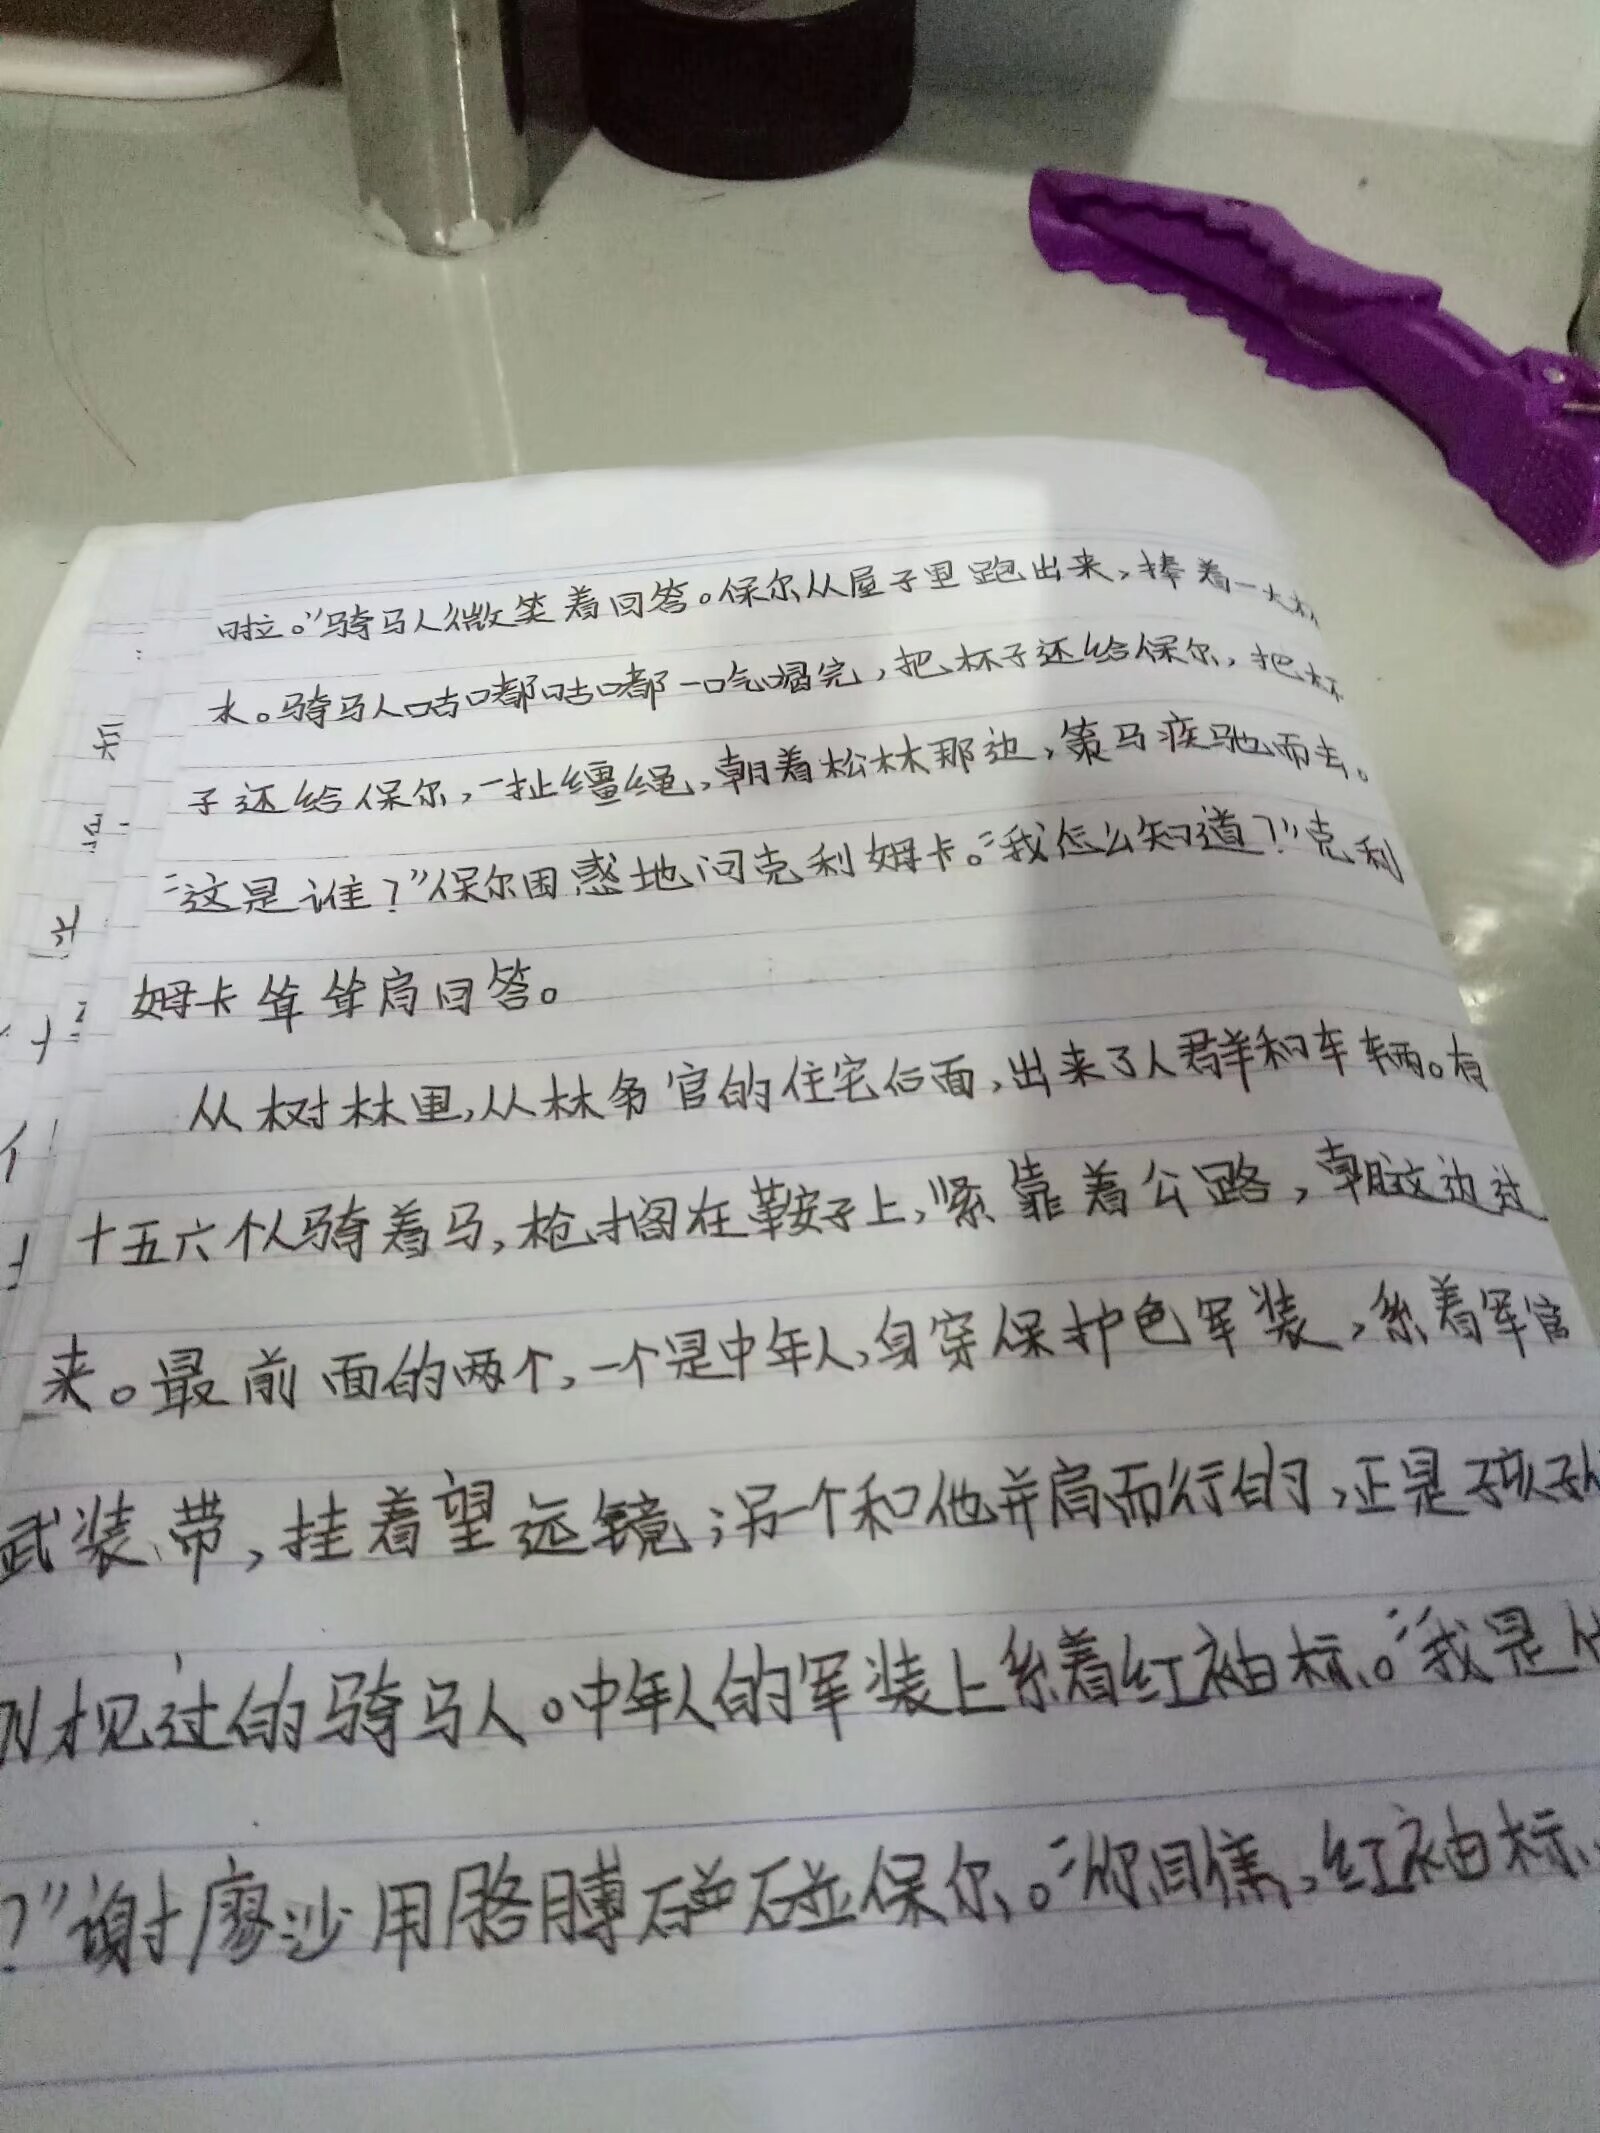 啦。”骑马人微笑着回答。保尔从屋子里跑出来，捧着一大杯
水。骑马人咕嘟咕嘟一口气喝完，把杯子还给保尔，把杯
子还给保尔，一扯缰绳，朝着松林那边，策马疾驰而去。
“这是谁？”保尔困惑地问克利姆卡。“我怎么知道？”克利
姆卡耸耸肩回答。
从树林里，从林务官的住宅后面，出来了人群和车辆。有
十五六个人骑着马，枪搁在鞍子上，紧靠着公路，朝这边过
来。最前面的两个，一个是中年人，身穿保护色军装，系着军官
武装带，挂着望远镜；另一个和他并肩而行的，正是孩子们
刚才见过的骑马人。中年人的军装上系着红袖标。“我是
？”谢廖沙用胳膊碰碰保尔。“你目焦，红袖标。